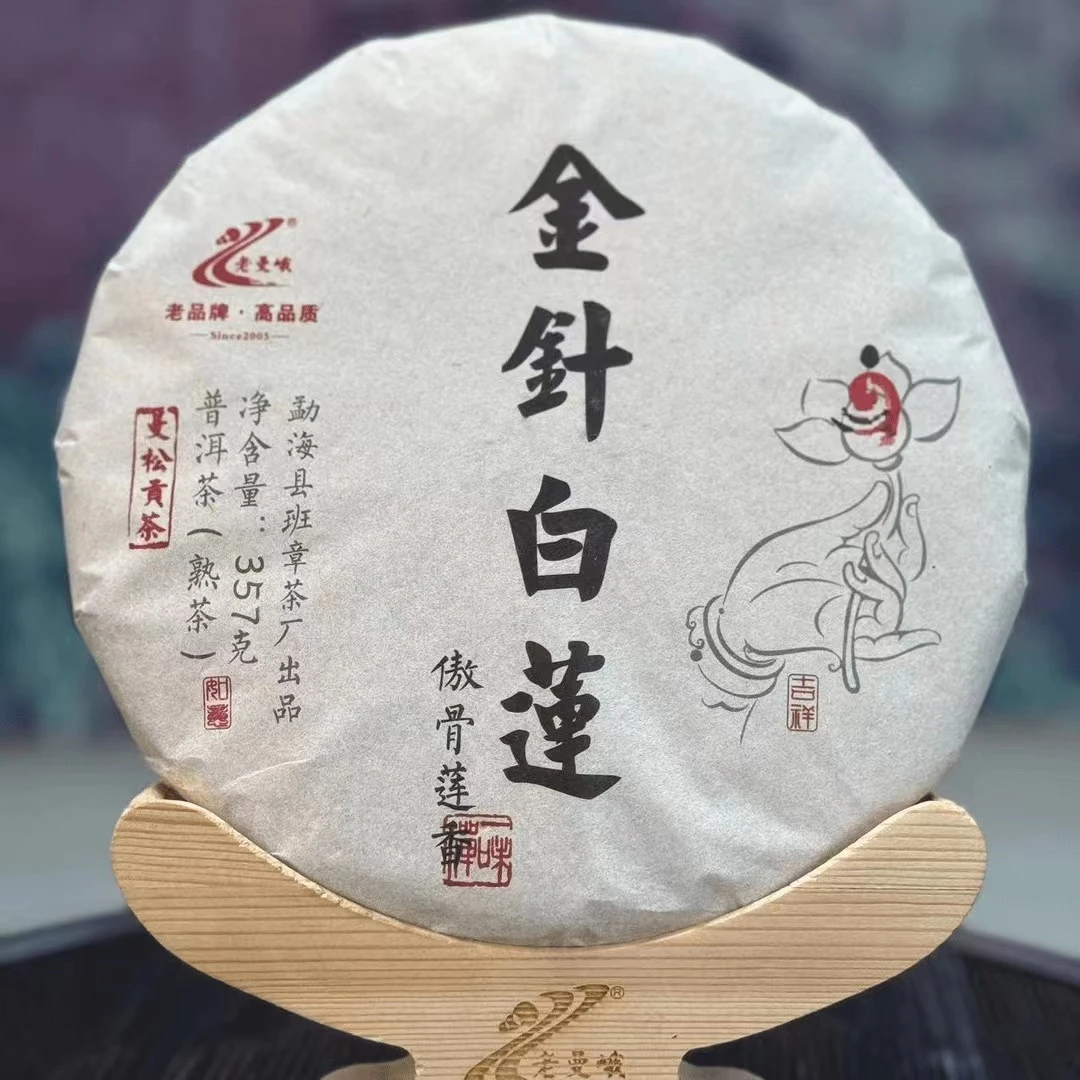 金針白蓮
傲骨莲香
一味禪
老曼峨®
老品牌·高品质
Since2005
勐海县班章茶厂出品
净含量：357克
普洱茶（熟茶）
曼松贡茶
如意
吉祥
®
老曼峨